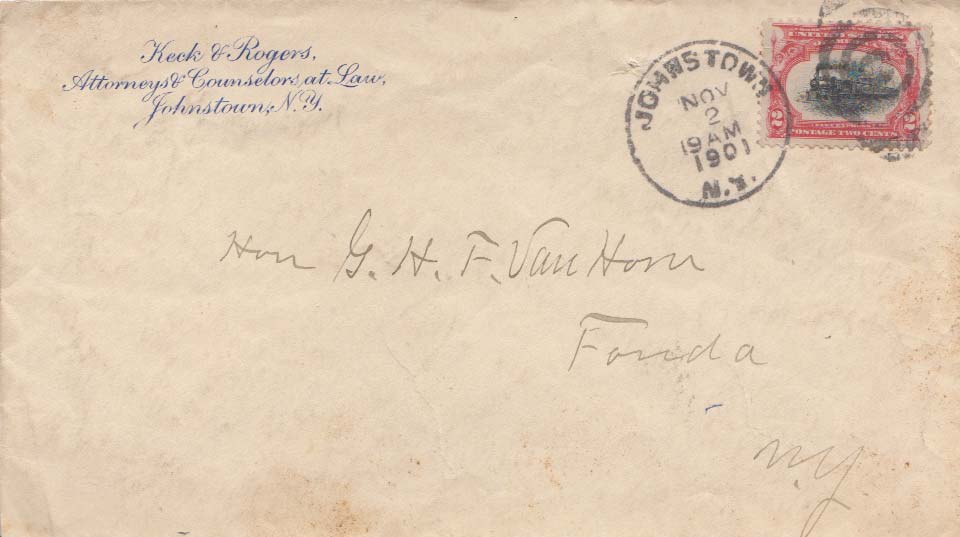 Keck & Rogers,
Attorneys & Counselors at Law,
Johnstown, N.Y.
JOHNSTOWN
NOV
2
9 AM
1901
N.Y.
UNITED STATES
2 2
POSTAGE TWO CENTS
Hon G. H. F. Van Horn
Fonda
N.Y